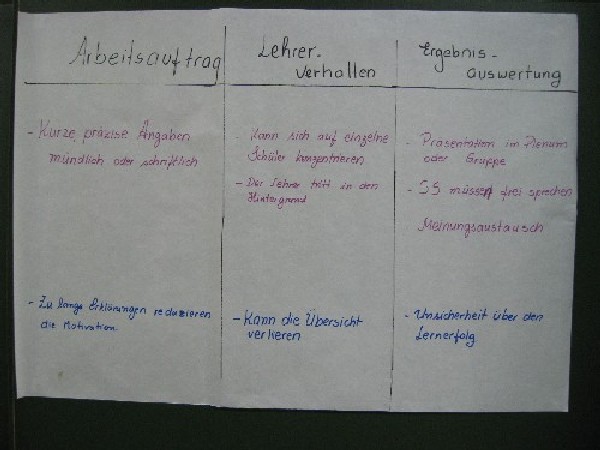 Arbeitsauftrag
- Kurze, präzise Angaben
mündlich oder schriftlich
- Zu lange Erklärungen reduzieren
die Motivation
Lehrer-
verhalten
- Kann sich auf einzelne
Schüler konzentrieren
- Der Lehrer tritt in den
Hintergrund
- Kann die Übersicht
verlieren
Ergebnis-
auswertung
- Präsentation im Plenum
oder Gruppe
- SS müssen frei sprechen
Meinungsaustausch
- Unsicherheit über den
Lernerfolg